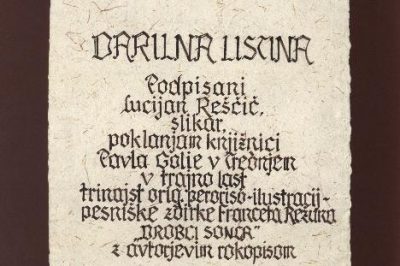 DARILNA LISTINA
Podpisani
Lucijan Reščič,
slikar,
poklanjam knjižnici
Pavla Golie v Trebnjem
v trajno last
trinajst orig. perorisb-ilustracij-
pesniške zbirke Franceta Režuna
"DROBCI SONCA"
z avtorjevim rokopisom